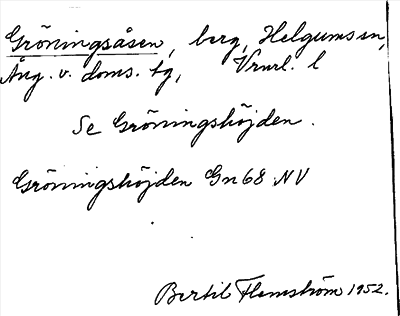 Gröningsåsen, berg, Helgums sn,
Ång. v. doms. tg, Vrurl. l
Se Gröningshöjden.
Gröningshöjden Gn 68 NV
Bertil Flemström 1952.